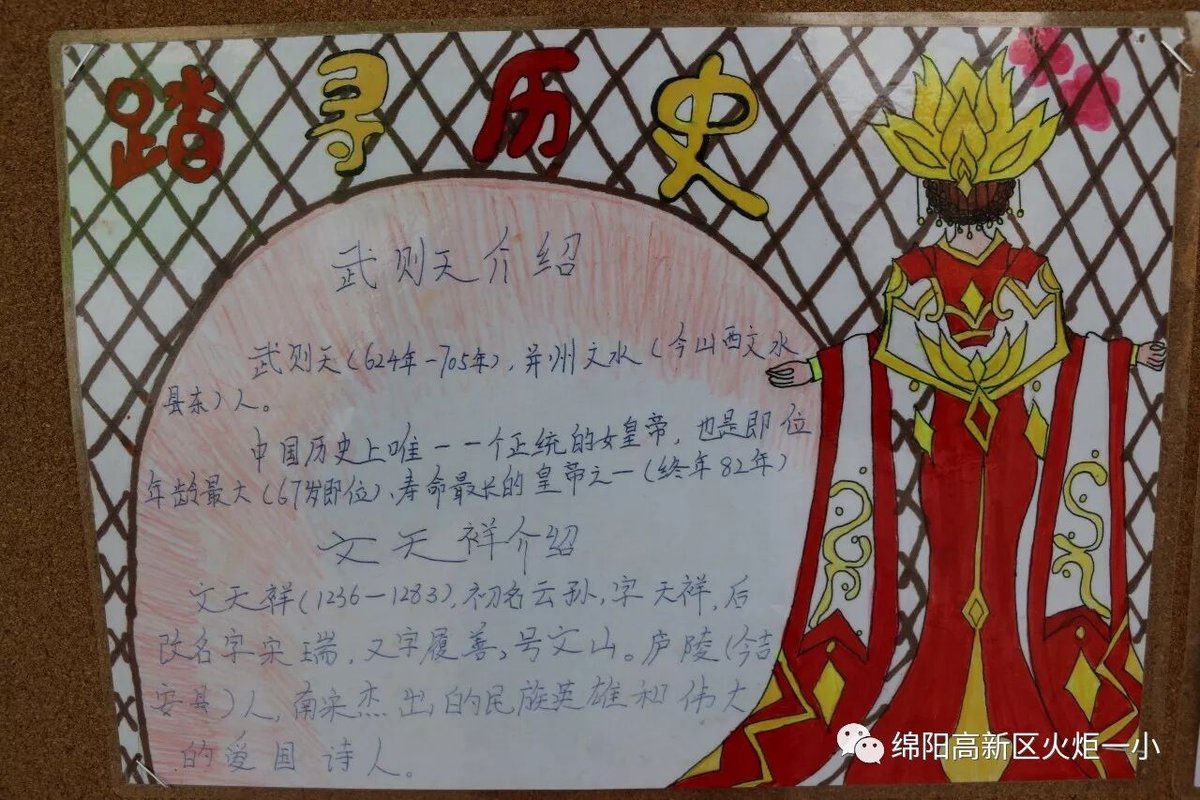 踏寻历史
武则天介绍
武则天(624年-705年),并州文水(今山西文水
县东)人。
中国历史上唯一一个正统的女皇帝,也是即位
年龄最大(67岁即位)、寿命最长的皇帝之一(终年82年)
文天祥介绍
文天祥(1236-1283),初名云孙,字天祥,后
改名字宋瑞,又字履善,号文山。庐陵(今吉
安县)人,南宋杰出的民族英雄和伟大
的爱国诗人。
绵阳高新区火炬一小